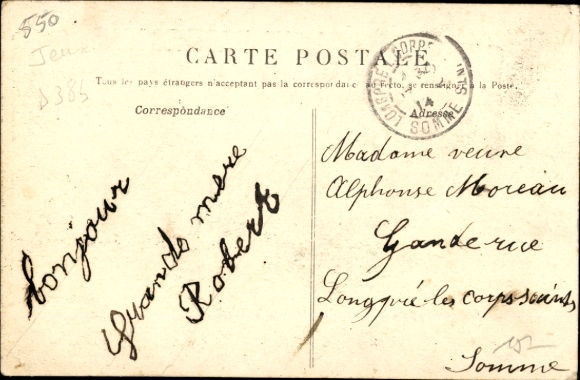 550
Jeux
D386
CARTE POSTALE
Tous les pays étrangers n'acceptent pas la correspondance au recto, se renseigner à la Poste.
Correspondance
Adresse
SOMME
14
bonjour
Grande mere
Robert
Madame veuve
Alphonse Moreau
Gande rue
Longprié les corps saints
Somme